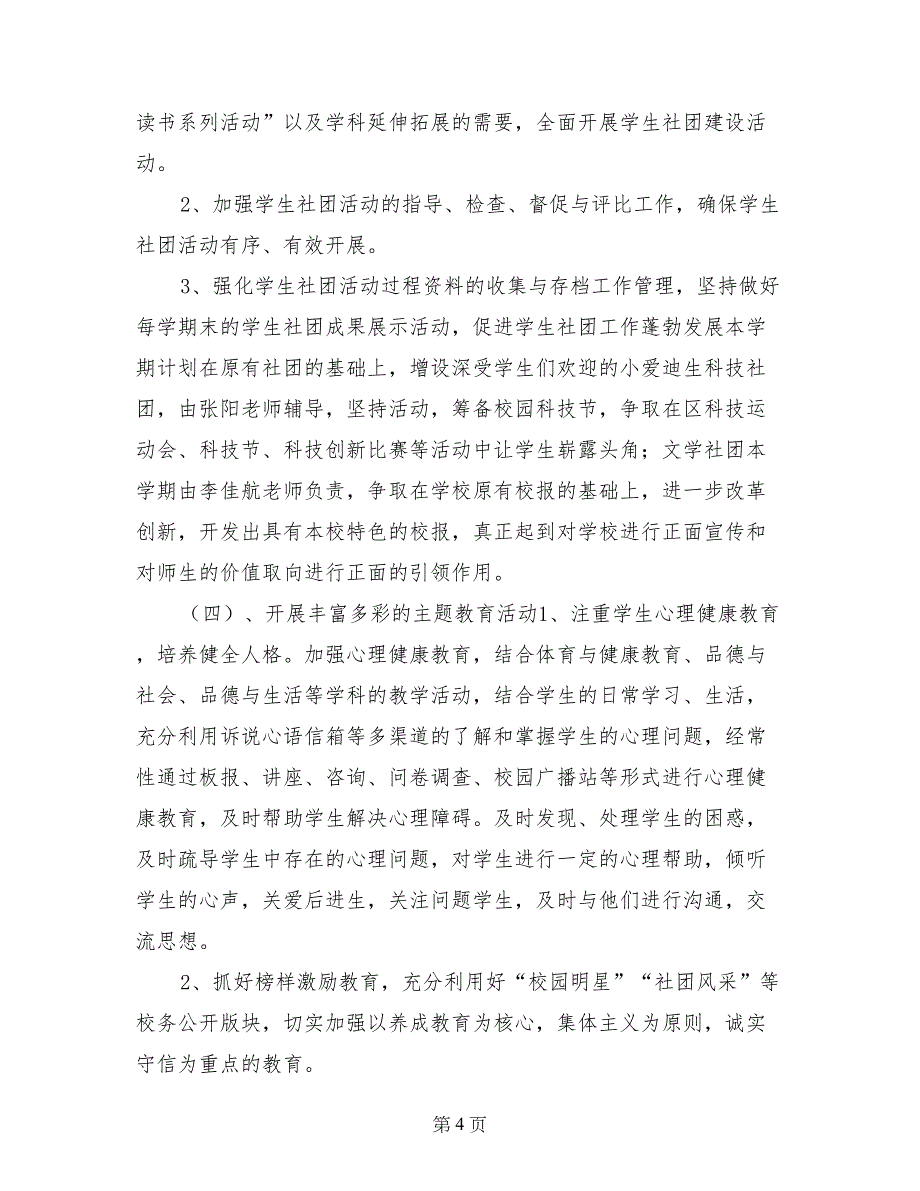 读书系列活动”以及学科延伸拓展的需要，全面开展学生社团建设活
动。
2、加强学生社团活动的指导、检查、督促与评比工作，确保学生
社团活动有序、有效开展。
3、强化学生社团活动过程资料的收集与存档工作管理，坚持做好
每学期末的学生社团成果展示活动，促进学生社团工作蓬勃发展本学
期计划在原有社团的基础上，增设深受学生们欢迎的小爱迪生科技社
团，由张阳老师辅导，坚持活动，筹备校园科技节，争取在区科技运
动会、科技节、科技创新比赛等活动中让学生崭露头角；文学社团本
学期由李佳航老师负责，争取在学校原有校报的基础上，进一步改革
创新，开发出具有本校特色的校报，真正起到对学校进行正面宣传和
对师生的价值取向进行正面的引领作用。
（四）、开展丰富多彩的主题教育活动1、注重学生心理健康教育
，培养健全人格。加强心理健康教育，结合体育与健康教育、品德与
社会、品德与生活等学科的教学活动，结合学生的日常学习、生活，
充分利用诉说心语信箱等多渠道的了解和掌握学生的心理问题，经常
性通过板报、讲座、咨询、问卷调查、校园广播站等形式进行心理健
康教育，及时帮助学生解决心理障碍。及时发现、处理学生的困惑，
及时疏导学生中存在的心理问题，对学生进行一定的心理帮助，倾听
学生的心声，关爱后进生，关注问题学生，及时与他们进行沟通，交
流思想。
2、抓好榜样激励教育，充分利用好“校园明星”“社团风采”等
校务公开版块，切实加强以养成教育为核心，集体主义为原则，诚实
守信为重点的教育。
第 4 页